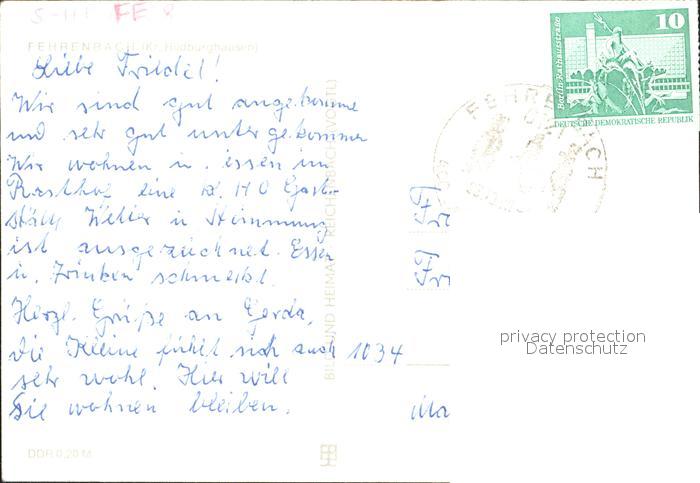 S-111 FE 8
FEHRENBACH (Kr. Hildburghausen)
Liebe Friedel!
Wir sind gut angekomme
und sehr gut untergekommen
Wir wohnen u. essen im
Rasthof eine kl. HO Gast-
stätte Wetter u Stimmung
ist ausgezeichnet. Essen
u. Trinken schmeckt.
Herzl. Grüße an Gerda,
die Kleine fühlt sich auch
sehr wohl. Hier will
Sie wohnen bleiben.
1034
DDR 0,20 M
BILD UND HEIMAT REICHENBACH (VOGTL)
10
Berlin-Rathausstraße
DEUTSCHE DEMOKRATISCHE REPUBLIK
FEHRENBACH
Fr
Fr
Ma
privacy protection
Datenschutz